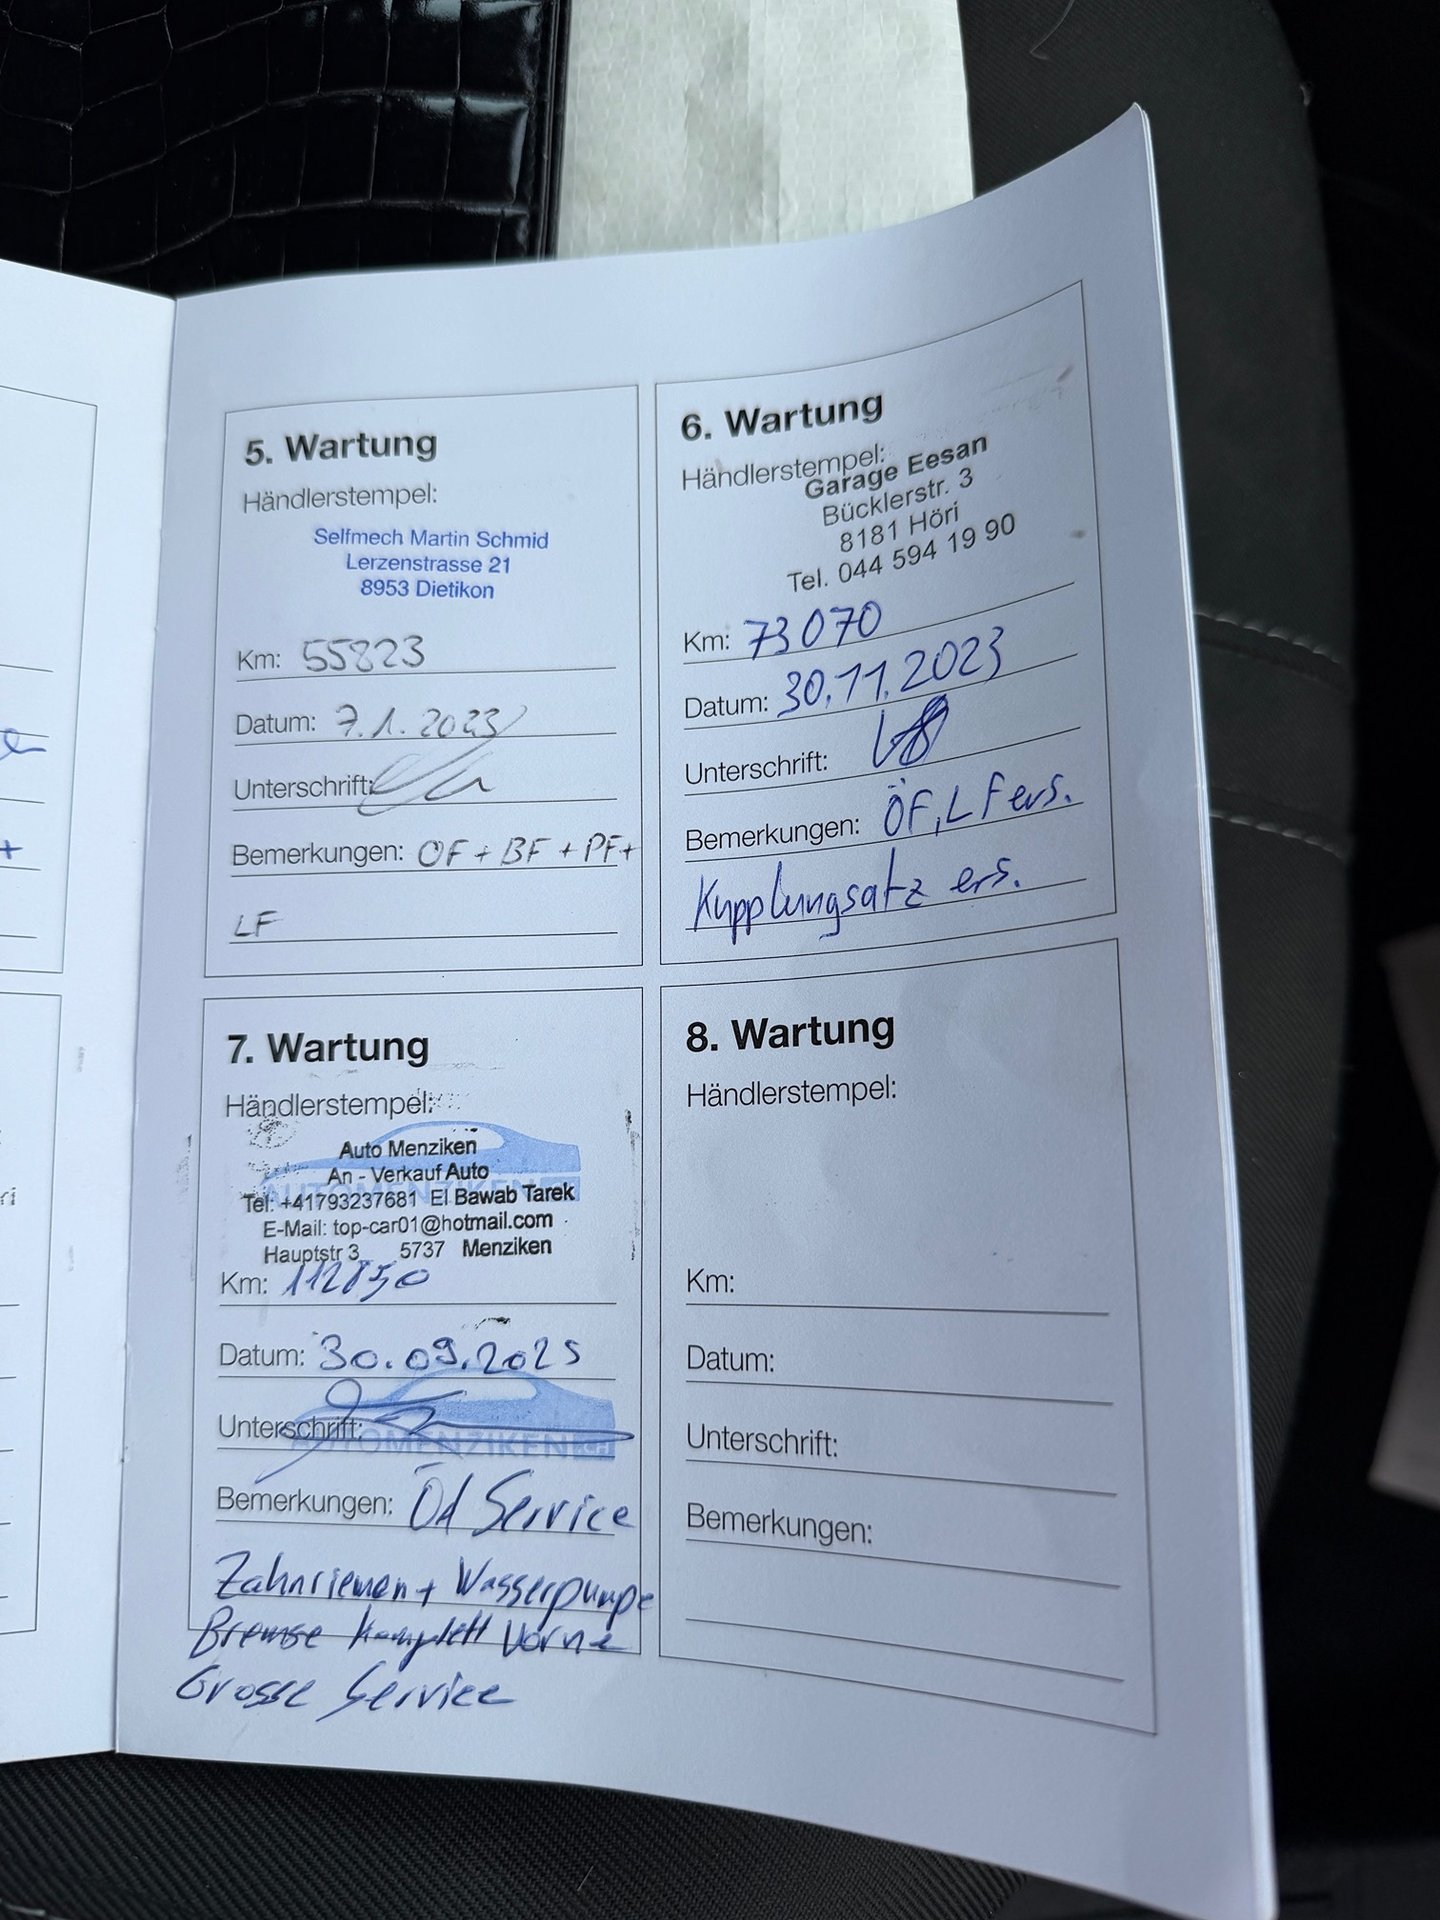 5. Wartung
Händlerstempel:
Selfmech Martin Schmid
Lerzenstrasse 21
8953 Dietikon
Km: 55823
Datum: 7.1.2023
Unterschrift:
Bemerkungen: ÖF + BF + PF +
LF
6. Wartung
Händlerstempel:
Garage Eesan
Bücklerstr. 3
8181 Höri
Tel. 044 594 19 90
Km: 73070
Datum: 30.11.2023
Unterschrift:
Bemerkungen: ÖF, LF ers.
Kupplungsatz ers.
7. Wartung
Händlerstempel:
Auto Menziken
An - Verkauf Auto
Tel: +41793237681 El Bawab Tarek
E-Mail: top-car01@hotmail.com
Hauptstr 3 5737 Menziken
Km: 112850
Datum: 30.09.2025
Unterschrift:
AUTOMENZIKEN
Bemerkungen: Öl Service
Zahnriemen + Wasserpumpe
Bremse komplett Vorne
Grosse Service
8. Wartung
Händlerstempel:
Km:
Datum:
Unterschrift:
Bemerkungen: